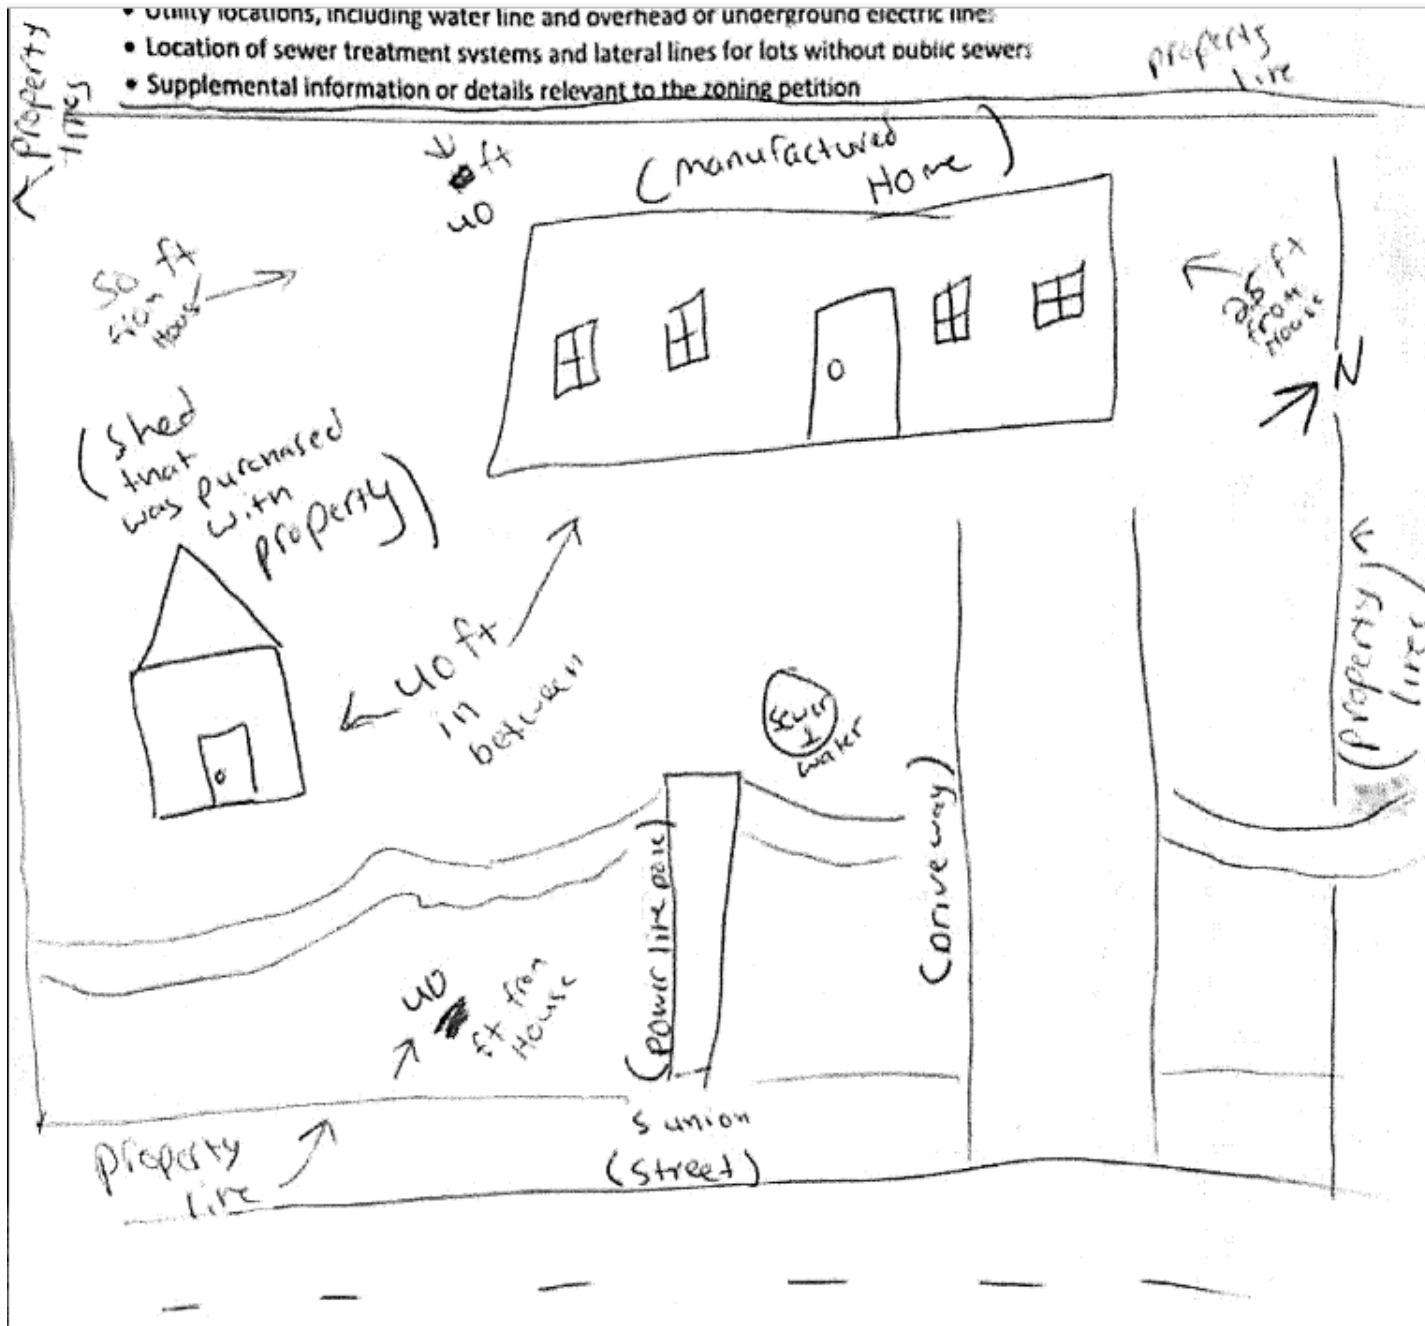 • Utility locations, including water line and overhead or underground electric lines
• Location of sewer treatment systems and lateral lines for lots without public sewers
• Supplemental information or details relevant to the zoning petition
property
line
property
lines
ft
40
(manufactured
Home)
50 ft
from
House
25 ft
from
House
N
(shed
that
was purchased
with
property)
40 ft
in
between
sewer
+
water
(property
lines)
(power line pole)
(Driveway)
40
ft from
House
property
line
s union
(street)